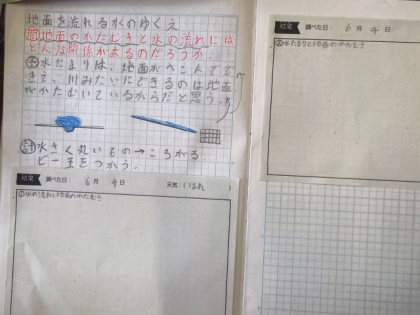 地面を流れる水のゆくえ
問地面のかたむきと水の流れには
どんな関係があるのだろうか。
予水たまりは、地面がへこんでて
きて、川みたいにできるのは地面
がかたむいているからだと思う。
計水さく丸いもの→ころがる
ビー玉をつかう。
結果 調べた日： 6月 4日 天気：はれ
①水の流れと地面のかたむき
結果 調べた日： 6月 4日
②水たまりと地面のかたむき